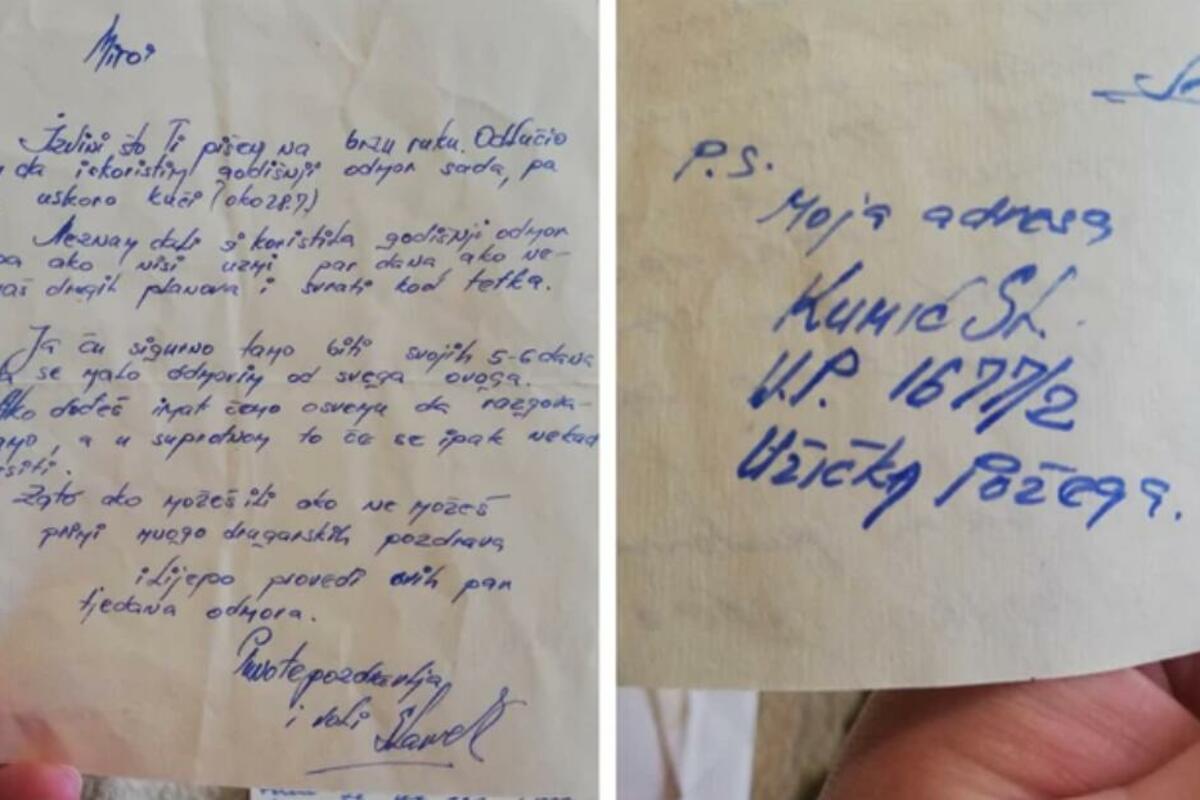 Miroi
Izvini što Ti pišem na brzu ruku. Odlučio
da iskoristim godišnji odmor sada, pa
uskoro kući (oko 28.7.)
Neznam dali si koristila godišnji odmor
pa ako nisi uzmi par dana ako ne-
maš drugih planova i svrati kod tetka.
Ja ću sigurno tamo biti svojih 5-6 dana
da se malo odmorim od svega ovoga.
Ako dođeš imat ćemo osvemu da razgova-
amo, a u suprotnom to će se ipak nekad
Zato ako možeš ili ako ne možeš
primi mnogo drugarskih pozdrava
i lijepo provedi ovih par
tjedana odmora.
Puno te pozdravlja
i voli Slavek
P.S.
Moja adresa
Kumić Sl.
V.P. 1677/2
Užička Požega.